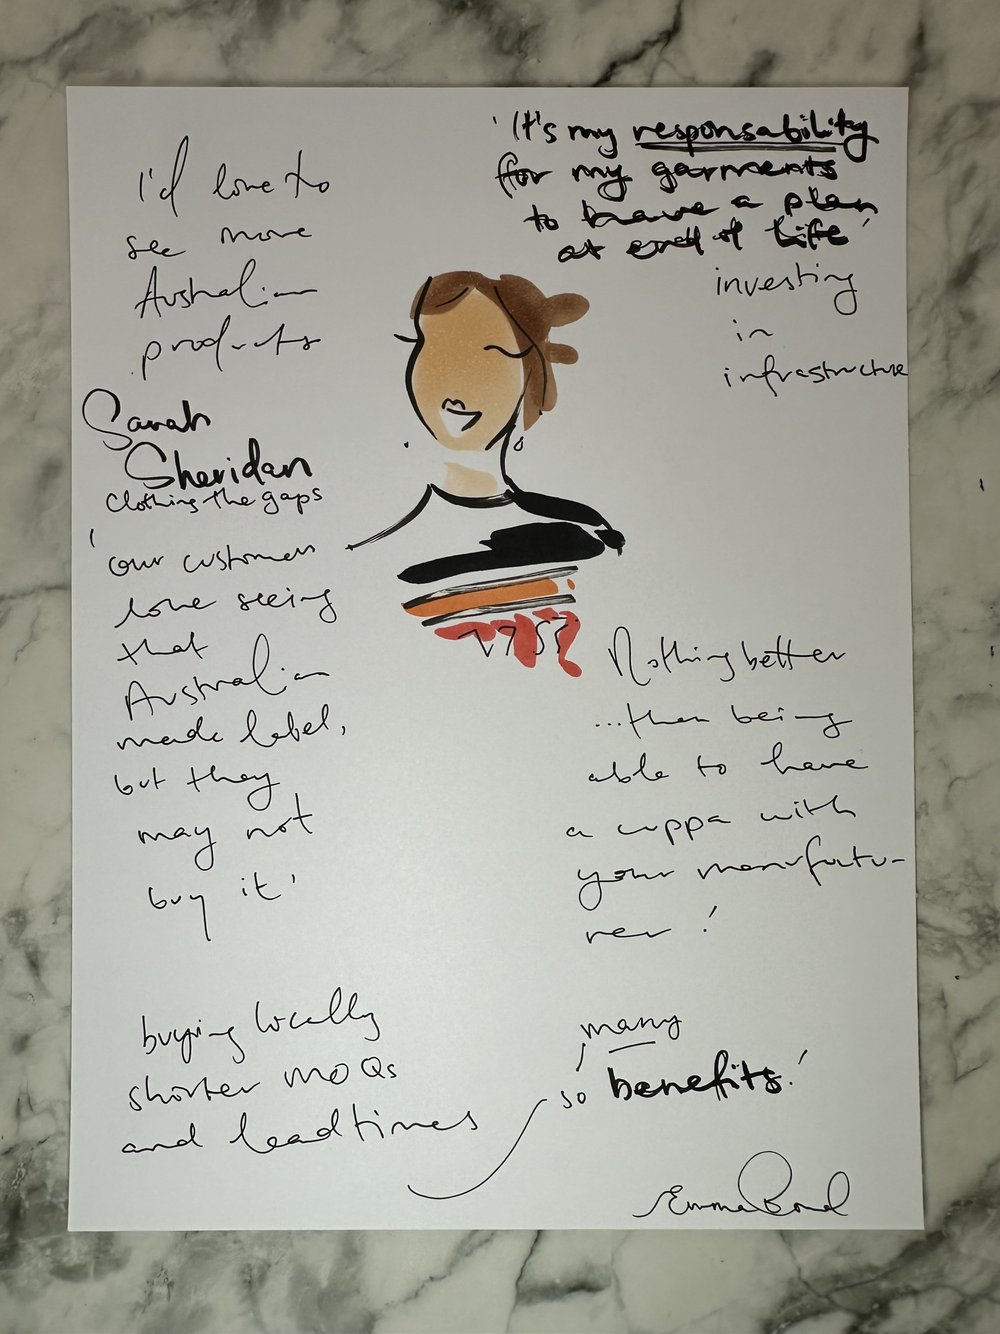 I'd love to
see more
Australian
products
Sarah
Sheridan
Clothing the gaps
'our customers
love seeing
that
Australian
made label,
but they
may not
buy it'
buying locally
shorter MOQs
and leadtimes
'It's my responsability
for my garments
to have a plan
at end of life'
investing
in
infrastructure
Nothing better
...than being
able to have
a cuppa with
your manufactu-
rer!
many
'so benefits.'
Emma Bond